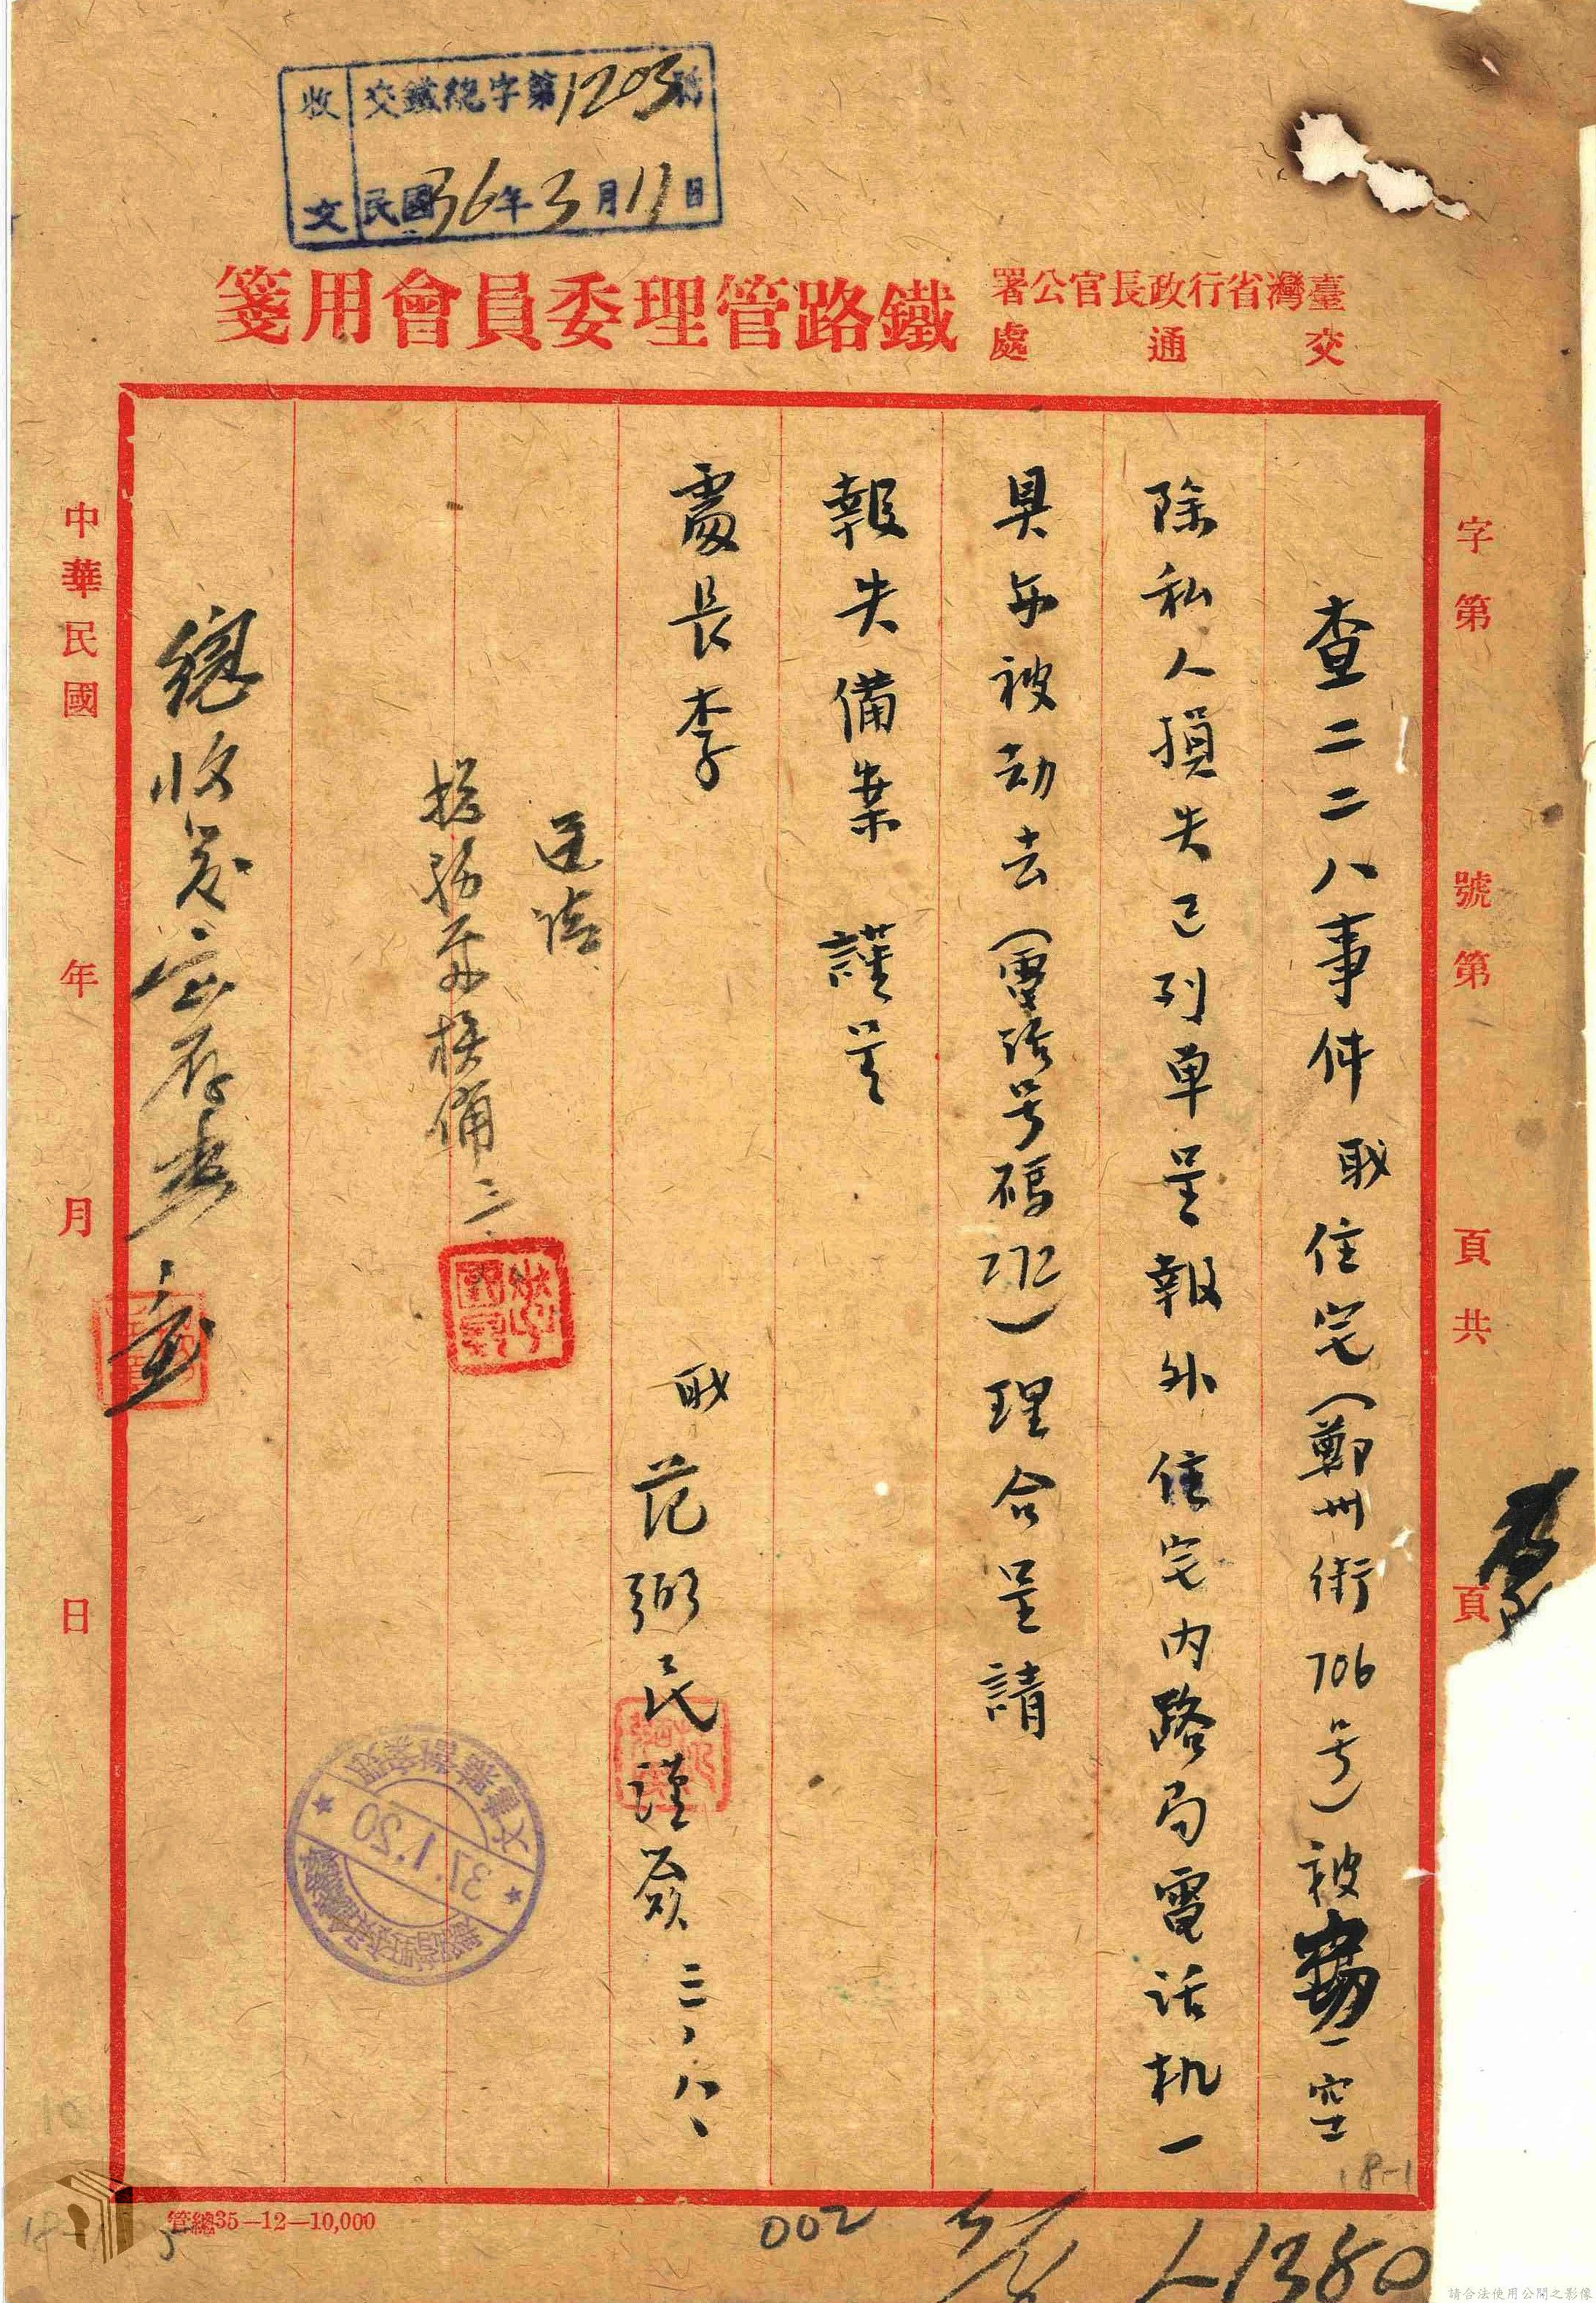 收文
交鐵總字第1203號
民國36年3月11日
臺灣省行政長官公署
交通處
鐵路管理委員會用箋
字第 號第 頁共 頁
查二二八事件 职住宅(鄭州街706号)被劫一空
除私人損失已列单呈報外住宅内路局電话机一
具亦被劫去(電话号碼272)理合呈請
報失備案 謹呈
處長李
职范弼民謹簽 三、八、
總務
中華民國 年 月 日
31.1.20
管總35—12—10,000
002
18-1
請合法使用公開之影像